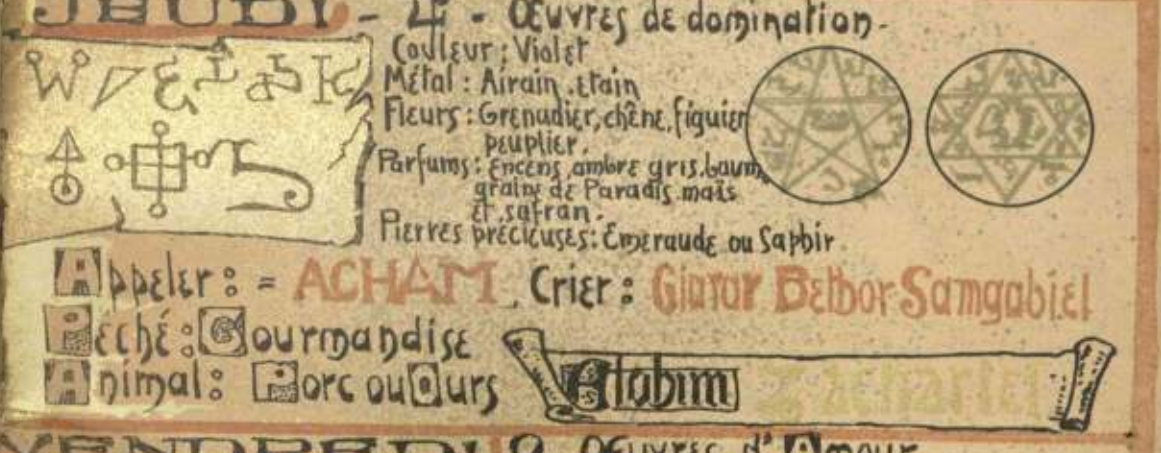 JEUDI - ♃ - Œuvres de domination -
Couleur : Violet
Métal : Airain . étain
Fleurs : Grenadier, chêne, figuier
peuplier .
Parfums : encens, ambre gris, baume
graine de Paradis . maïs
et . safran .
Pierres précieuses : Emeraude ou Saphir
Appeler : = ACHAM . Crier : Giarar Betbor Samgabiel
Péché : Gourmandise
Animal : Porc ou Ours
Elohim Zachariel
VENDREDI ♀ Œuvres d'Amour